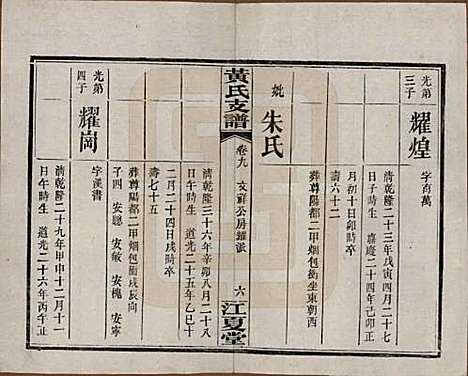 光弟三子
耀煌
字育萬
清乾隆二十三年戊寅四月二十七
日子時生 嘉慶二十四年己卯正
月初十日戌時卒
壽六十二
葬尊陽都二甲烟包衝坐東朝西
妣
朱氏
清乾隆三十六年辛卯八月二十八
日午時生 道光二十五年乙巳十
二月二十四日戌時卒
壽七十五
葬尊陽都二甲烟包衝戌辰向
子四 安聰 安敏 安槐 安寧
黃氏支譜
卷九
支祥公房耀派
六
江夏堂
光弟四子
耀崗
字漢書
清乾隆二十九年甲申十二月十一
日午時生 道光二十六年丙午正